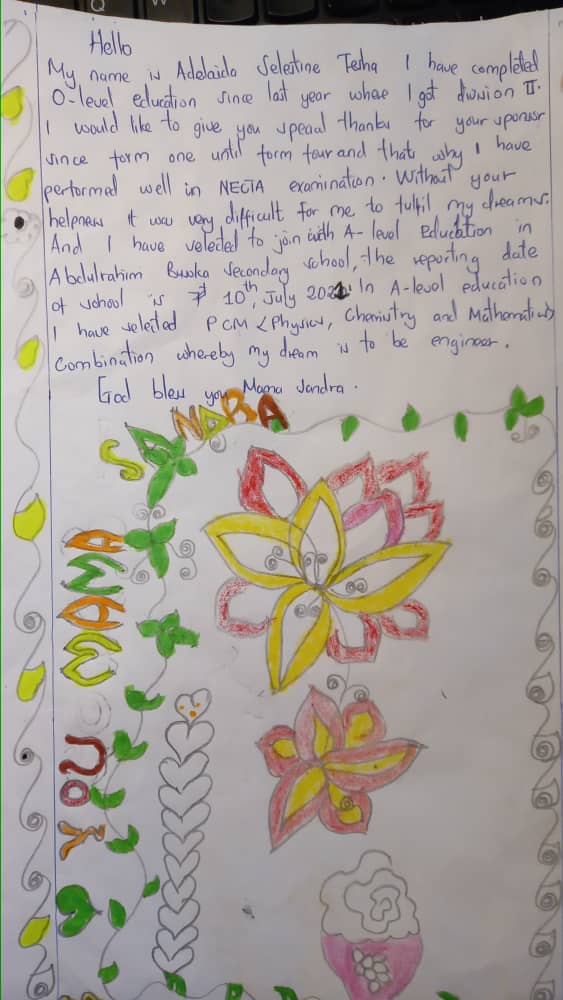 Q
W
Hello
My name is Adelaida Selestine Tesha I have completed
O-level education since last year where I got division II.
I would like to give you special thanks for your sponsor
since form one until form four and that why I have
performed well in NECTA examination. Without your
helpness it was very difficult for me to fulfil my dreams.
And I have selected to join with A-level Education in
Abdulrahim Busoka Secondary school, the reporting date
of school is 10th, July 2021. In A-level education
I have selected PCM <Physics, Chemistry and Mathematics
combination whereby my dream is to be engineer.
God bless you Mama Sandra.
YOU MAMA SANDRA